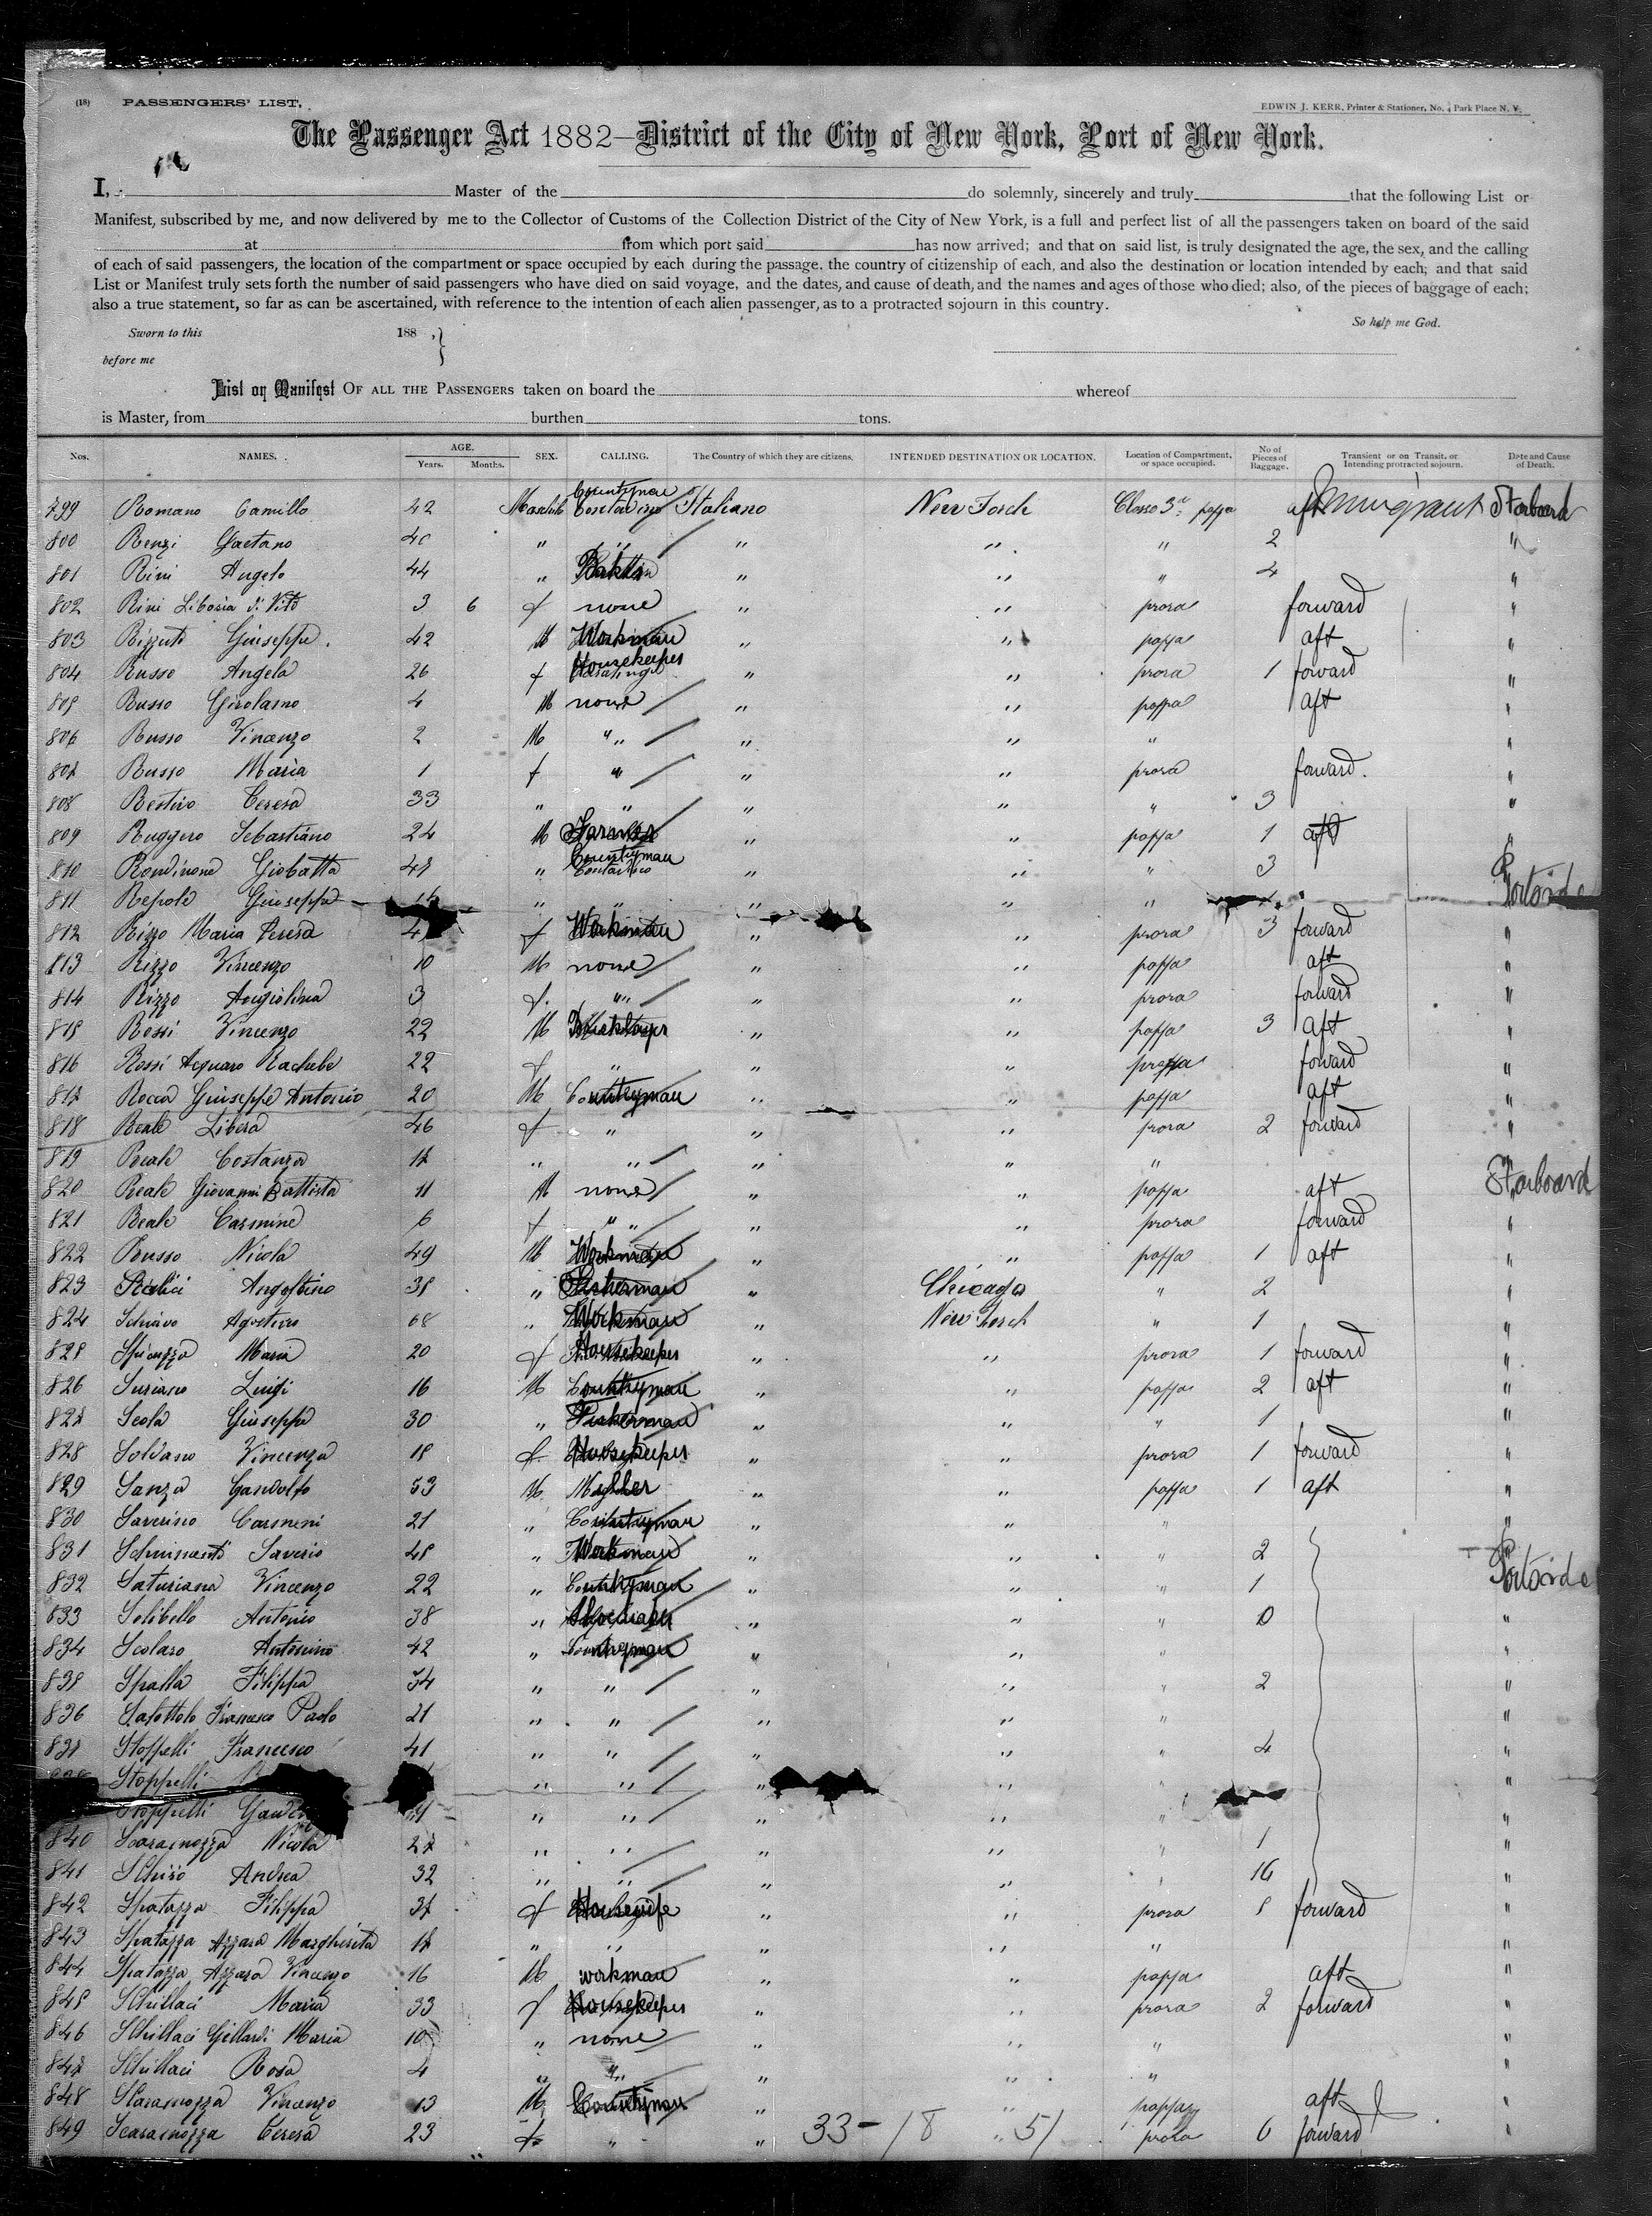 (18) PASSENGERS' LIST.
EDWIN J. KERR, Printer & Stationer, No. 4 Park Place N. Y.
The Passenger Act 1882—District of the City of New York, Port of New York.
I, Master of the do solemnly, sincerely and truly that the following List or
Manifest, subscribed by me, and now delivered by me to the Collector of Customs of the Collection District of the City of New York, is a full and perfect list of all the passengers taken on board of the said
at from which port said has now arrived; and that on said list, is truly designated the age, the sex, and the calling
of each of said passengers, the location of the compartment or space occupied by each during the passage, the country of citizenship of each, and also the destination or location intended by each; and that said
List or Manifest truly sets forth the number of said passengers who have died on said voyage, and the dates, and cause of death, and the names and ages of those who died; also, of the pieces of baggage of each;
also a true statement, so far as can be ascertained, with reference to the intention of each alien passenger, as to a protracted sojourn in this country.
Sworn to this 188 , } So help me God.
before me
List or Manifest OF ALL THE PASSENGERS taken on board the whereof
is Master, from burthen tons.
Nos. NAMES. AGE. Years. Months. SEX. CALLING. The Country of which they are citizens. INTENDED DESTINATION OR LOCATION. Location of Compartment, or space occupied. No of Pieces of Baggage. Transient or on Transit, or Intending protracted sojourn. Date and Cause of Death.
799 Romano Camillo 42 Maschile Countyman Contadino Italiano New Jorch Classe 3a poppa aft Immigrant Starboard
800 Renzi Gaetano 40 " " " " " 2 "
801 Rini Angelo 44 " " " " 4 "
802 Rini Liboria di Vito 3 6 f none " " prora forward "
803 Rizzuto Giuseppe 42 M Workman " " poppa aft "
804 Russo Angela 26 f Housekeeper Casalinga " " prora 1 forward "
805 Russo Girolamo 4 M none " " poppa aft "
806 Russo Vincenzo 2 M " " " " "
807 Russo Maria 1 f " " " prora forward. "
808 Restivo Teresa 33 " " " " " 3 "
809 Ruggero Sebastiano 24 M Farmer " " poppa 1 aft "
810 Rondinone Giobatta 48 " Countyman Contadino " " " 3
811 Repole Giuseppe " " " " " Portside
812 Rizzo Maria Teresa f Workman " " prora 3 forward "
813 Rizzo Vincenzo 10 M none " " poppa aft "
814 Rizzo Angiolina 3 f. " " " prora forward "
815 Rossi Vincenzo 22 M " " poppa 3 aft "
816 Rossi Acquaro Rachele 22 f " " " forward "
817 Rocca Giuseppe Antonio 20 M Countryman " " poppa aft "
818 Reale Libera 46 f " " " prora 2 forward "
819 Reale Costanza 17 " " " " " "
820 Reale Giovanni Battista 11 M none " " poppa aft Starboard
821 Reale Carmine 6 f " " " prora forward "
822 Russo Nicola 49 M Workman " " poppa 1 aft "
823 Angostino 38 " Fisherman " Chicago " 2 "
824 Schiavo Agostino 68 " Workman " New Jorch " 1 "
825 Maria 20 f Housekeeper " " prora 1 forward "
826 Suriano Luigi 16 M Countryman " " poppa 2 aft "
827 Scola Giuseppe 30 " Fisherman " " " 1 "
828 Soldano Vincenza 18 f Housekeeper " " prora 1 forward "
829 Sanza Gandolfo 53 M " " poppa 1 aft "
830 Saverino Carmeni 21 " Countryman " " " "
831 Saverio 48 " Workman " " " 2
832 Saturiana Vincenzo 22 " Countryman " " " 1 Portside
833 Solibello Antonio 38 " Shoemaker " " " 0 "
834 Scolaro Antonino 42 " Countryman " " " "
835 Spalla Filippo 54 " " " " " 2 "
836 Francesco Paolo 21 " " " " " "
837 Stoppelli Francesco 41 " " " " " 4 "
Stoppelli " " " " "
Stoppelli " " " " " "
840 Scaramozza Nicola 27 " " " " " 1 "
841 Schirò Andrea 32 " " " " " 16 "
842 Spatazza Filippa 37 f Housewife " " prora 8 forward "
843 Spatazza Azzara Margherita 17 " " " " " "
844 Spatazza Azzara Vincenzo 16 M workman " " poppa aft "
845 Schillaci Maria 33 f Housekeeper " " prora 2 forward "
846 Schillaci Gillardi Maria 10 " none " " " "
847 Schillaci Rosa 4 " " " " " "
848 Scaramozza Vincenzo 13 M Countryman " " poppa aft "
849 Scaramozza Teresa 23 f " " 33 - 18 " 51 prora 6 forward "